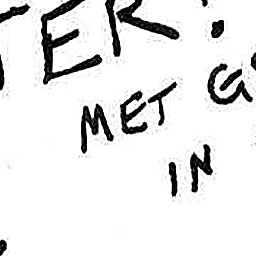 TER:
MET G
IN